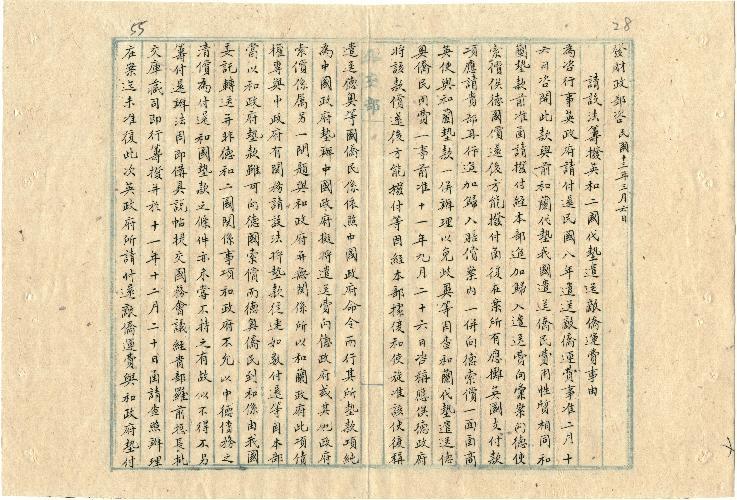 28
55
發財政部咨 民國十三年三月六日
請設法籌撥英和二國代墊遣送敵僑運費事由
為咨行事英政府請付還民國八年遣送敵僑運費事准二月十
六日咨開此款與前和蘭代墊我國遣送僑民費用性質相同和
蘭墊款前准函請撥付經本部
索償俟德國償還後方能撥付函復在案所有應攤英國支付款
項應請貴部再行
加歸入賠償案內一併向德索償一面函商
英使與和蘭墊款一併辦理以免
等因查和蘭代墊遣送德
奧僑民用費一事前准十一年九月二十六日咨稱應俟德政府
將該款償還後方能撥付等因經本部據復和使旋准該使復稱
遣送德奧等國僑民係依照中國政府命令而行其所墊款項純
為中國政府墊辦中國政府擬將遣送費向德政府或其他政府
索償係屬另一問題與和政府並無關係所以和蘭政府此項債
權專與中政府有關務請設法將墊款從速如數付還等因本部
當以和政府墊款雖可向德國索償而德奧僑民到和係由我國
委託轉送並非德和二國關係事項和政府不允以中德債務之
清償為付還和國墊款之條件亦未嘗不持之有故似不得不另
籌付還辦法因即備具說帖提交國務會議經貴部羅前總長批
交庫藏司即行籌撥並於十一年十二月二十日函請查照辦理
在案迄未准復此次英政府所請付還敵僑運費與和政府墊付